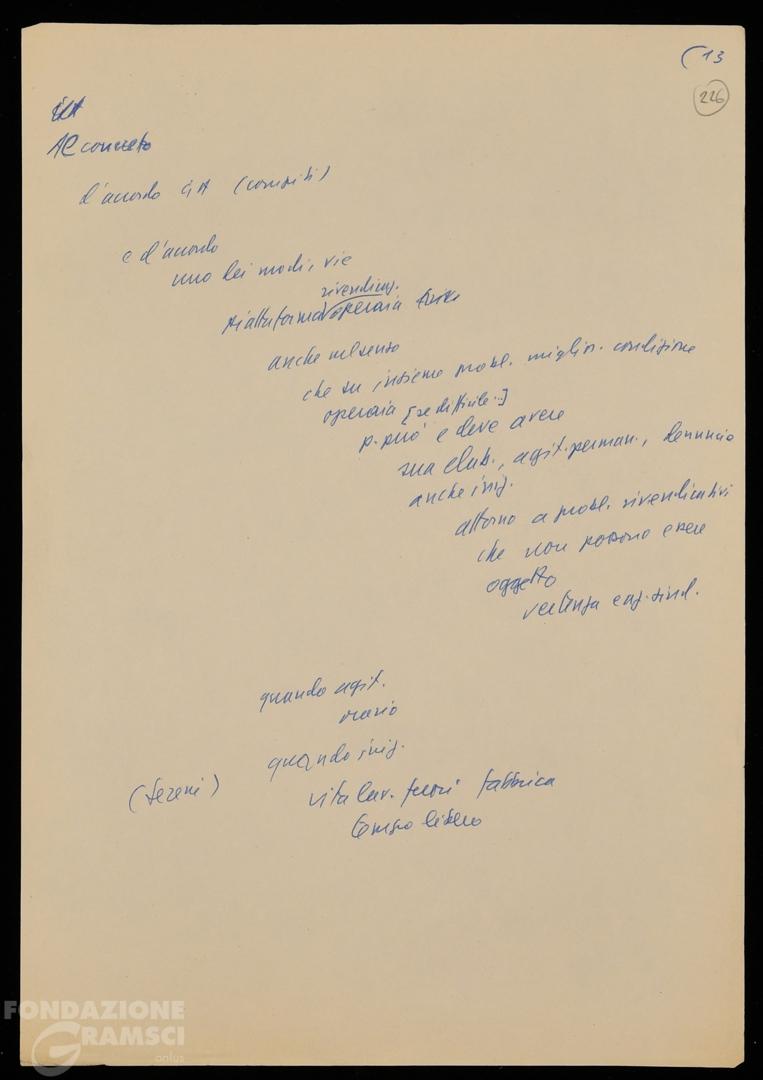 (13
226
Al concreto
d'accordo GA (compiti)
e d'accordo
uno dei modi, vie
rivendicaz.
piattaforma operaia
anche nel senso
che su insieme probl. miglior. condizione
operaia [se difficile..]
p. può e deve avere
sua elab., agit. perman., denuncia
anche iniz.
attorno a probl. rivendicativi
che non possono essere
oggetto
vertenza e az. sind.
quando agit.
orario
quando iniz.
(Sereni)
vita lav. fuori fabbrica
tempo libero
FONDAZIONE
GRAMSCI
onlus